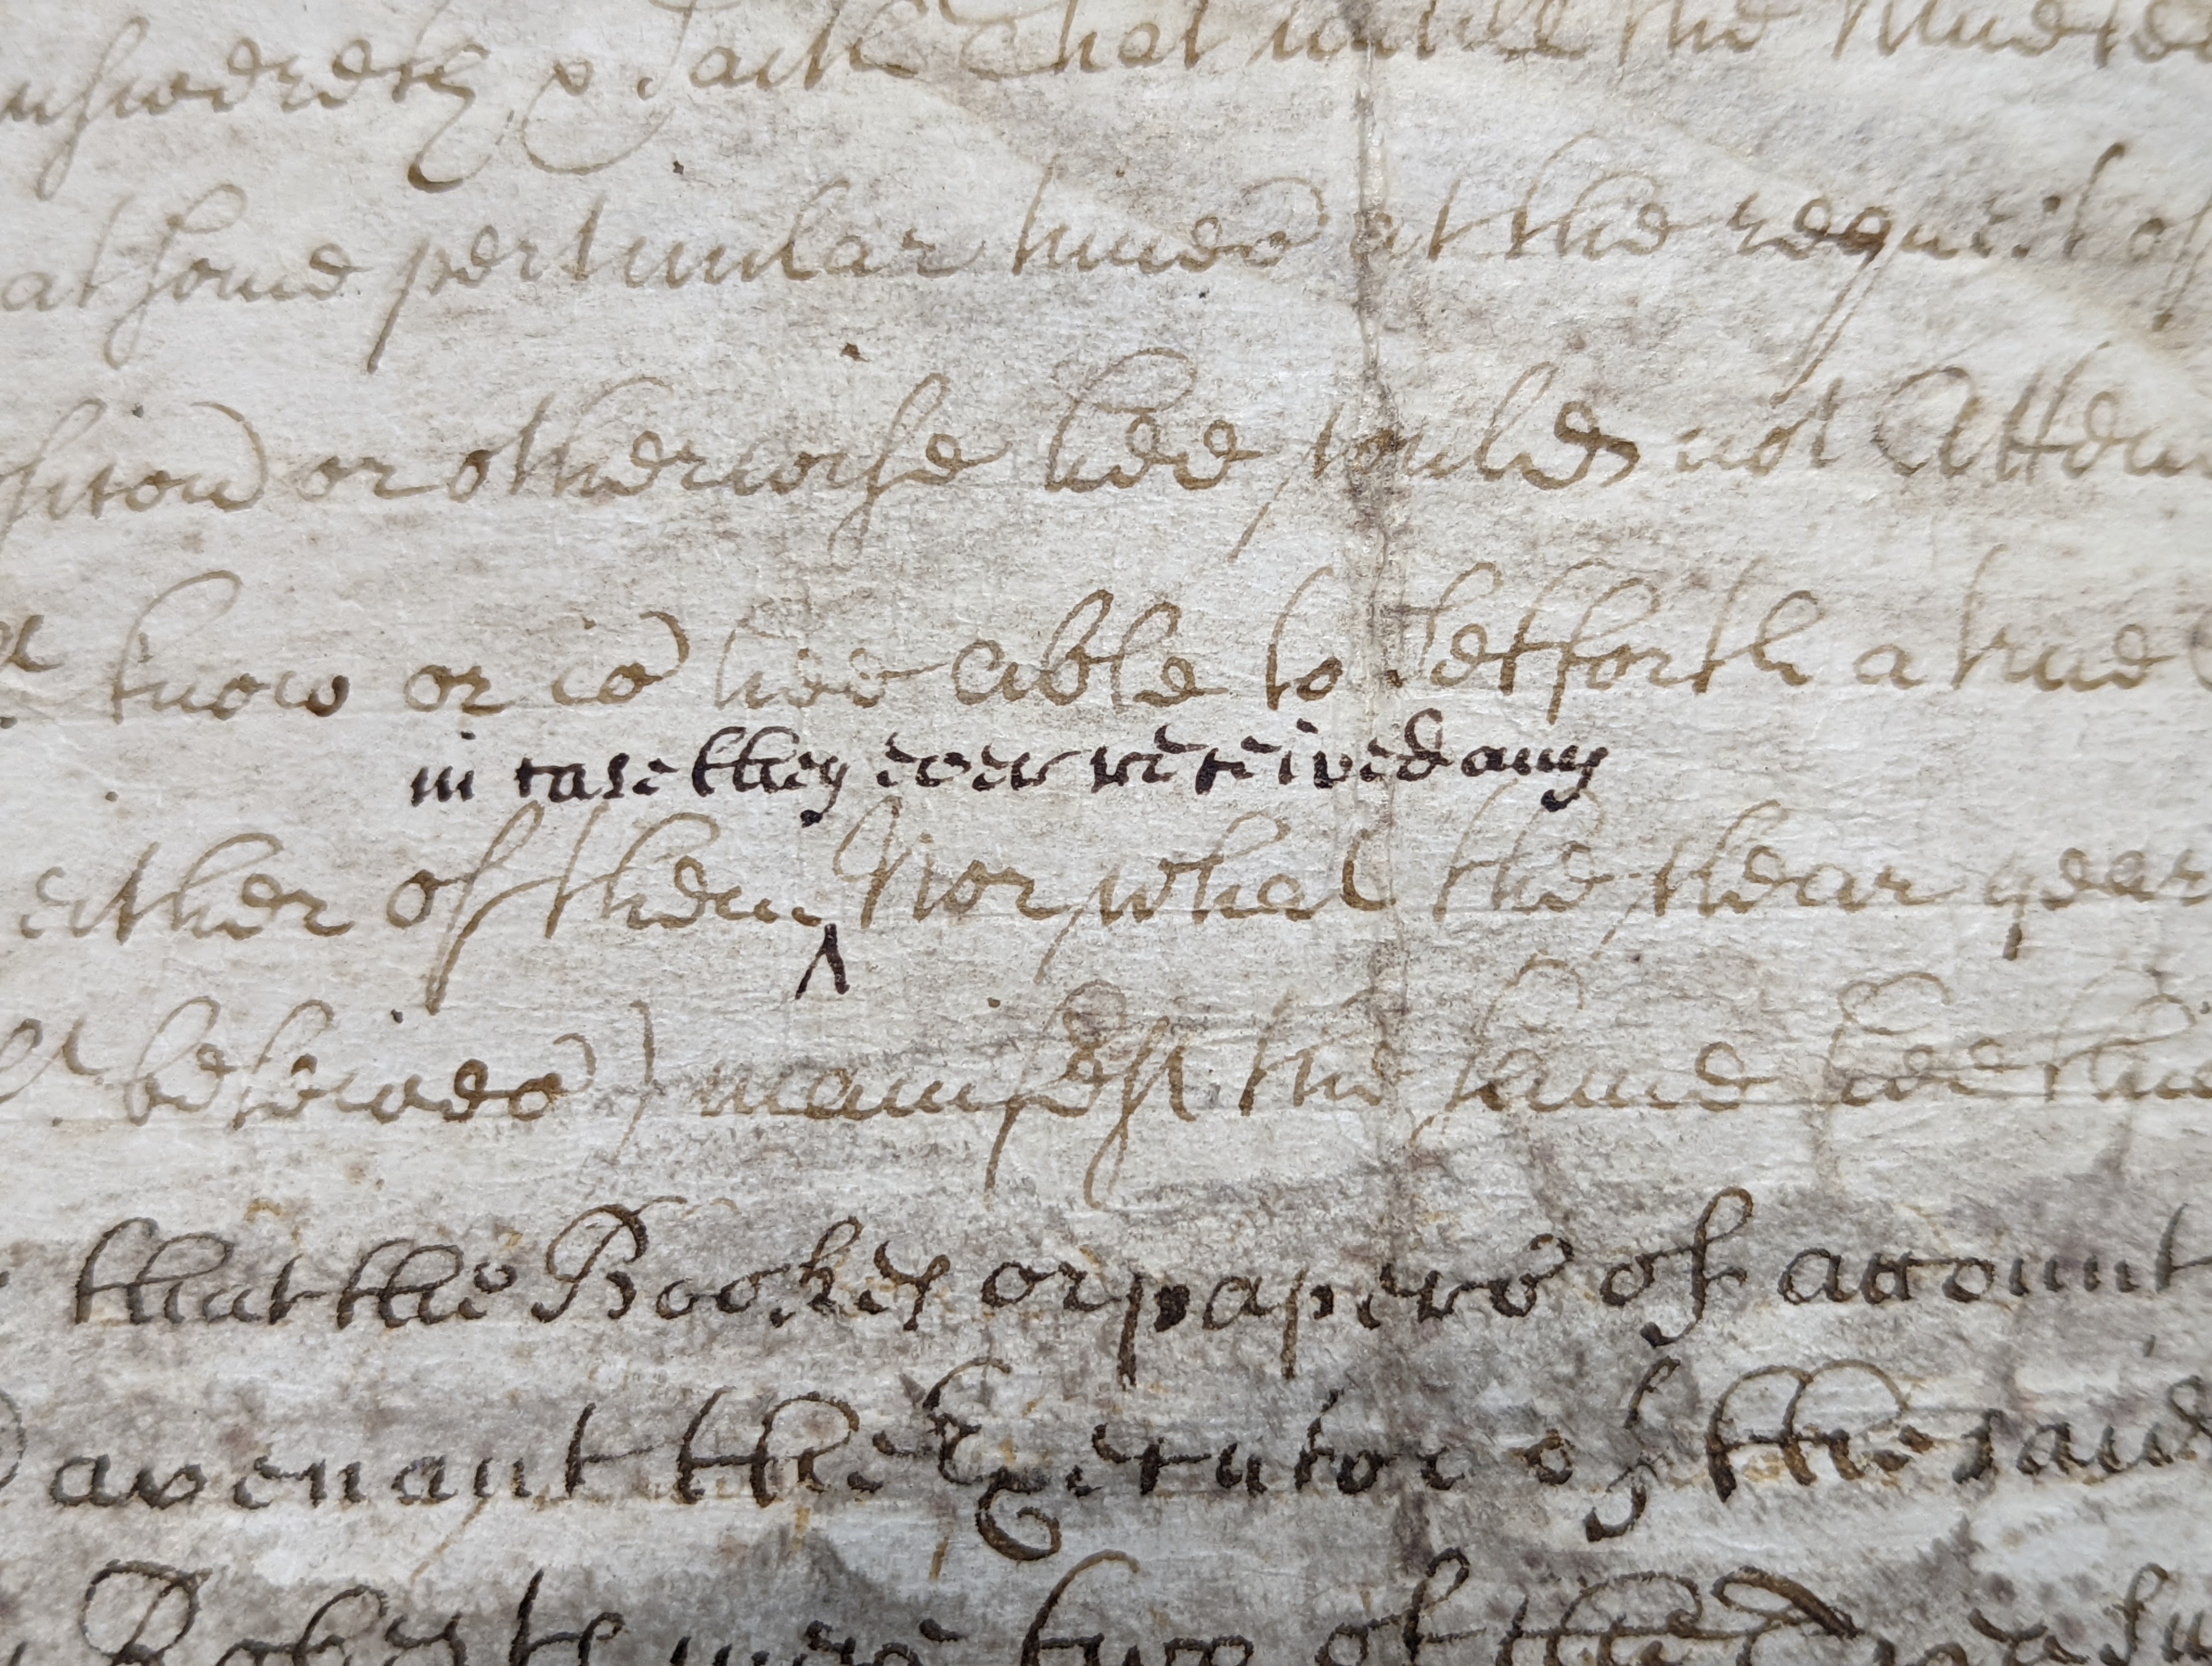 answereth & saith that untill the
at some perticular times at the request of
or otherwise hee could not Atten
know or is hee able to settforth a true
in case they ever received any
either of them Nor what the cleear year
besides) manifest the same
that the Bookes or papers of account
avenant the Executor of the said
were two of the